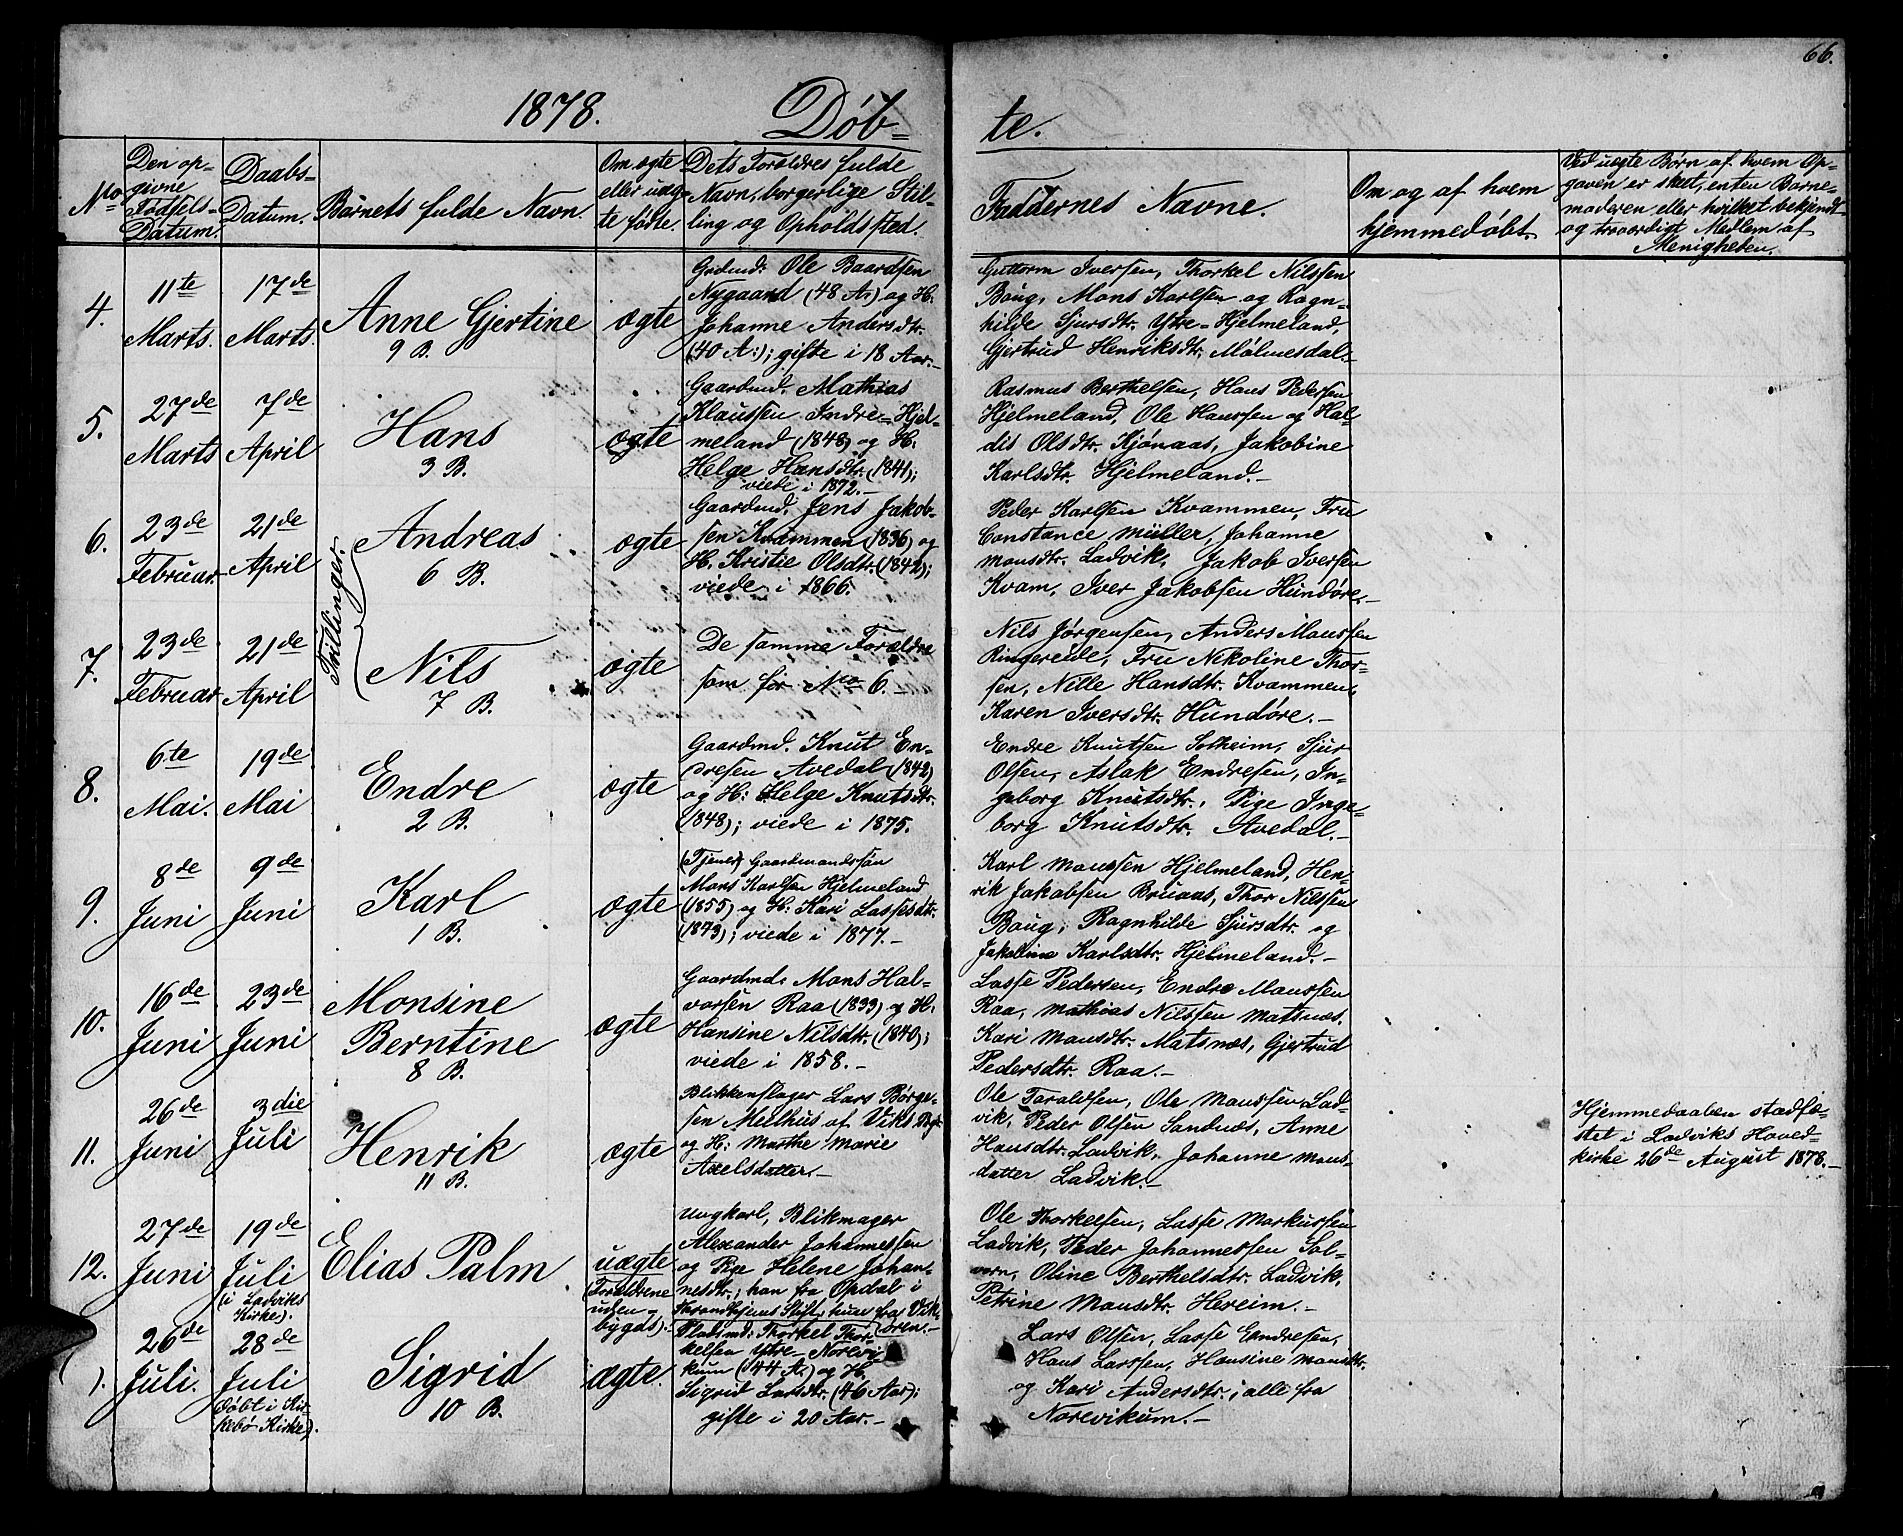 66.
1878. Døb-
te.
No
Den op-
givne
Fødsels-
Datum.
Daabs-
Datum.
Barnets fulde Navn.
Om ægte
eller uæg-
te fødte.
Dets Forældres fulde
Navn, borgerlige Stil-
ling og Opholdssted.
Faddernes Navne.
Om og af hvem
hjemmedøbt.
Ved uægte Børn af hvem Op-
gaven er skeet, enten Barne-
moderen eller hvilket bekjendt
og troværdigt Medlem af
Menigheden.
4.
11te
Marts.
17de
Marts.
Anne Gjertine
9 B.
ægte
Gaardmd: Ole Baardsen
Nygaard (48 Ar) og H.
Johanne Andersdtr.
(40 A:); gifte i 18 Aar.-
Guttorm Iversen, Thorkel Nilssen
Boug, Mons Karlsen og Ragn-
hilde Sjursdtr. Ytre-Hjelmeland,
Gjertrud Henriksdtr. Mølmesdal.-
5.
27de
Marts
7de
April
Hans
3 B.
ægte
Gaardmd. Mathias
Klaussen Indre-Hjel-
meland (1848) og H:
Helge Hansdtr. (1841);
viede i 1872.-
Rasmus Berthelsen, Hans Pedersen
Hjelmeland, Ole Hanssen og Hal-
dis Olsdtr. Kjønaas, Jakobine
Karlsdtr. Hjelmeland.-
Thillinger.
6.
23de
Februar.
21de
April
Andreas
6 B.
ægte
Gaardmd. Jens Jakob-
sen Kvammen (1836) og
H. Kristie Olsdtr. (1842);
viede i 1866.
Peder Karlsen Kvammen, Fru
Constance Müller, Johanne
Monsdtr. Ladvik, Jakob Iversen
Kvam, Iver Jakobsen Hundøre.-
7.
23de
Februar
21de
April
Nils
7 B.
ægte
De samme Forældre
som for No 6.-
Nils Jørgensen, Anders Monssen
Ringereide, Fru Nikoline Thor-
sen, Nille Hansdtr. Kvammen,
Karen Iversdtr. Hundøre.-
8.
6te
Mai.
19de
Mai
Endre
2 B.
ægte
Gaardmd. Knut En-
dresen Avedal (1842)
og H: Helge Knutsdtr.
(1848); viede i 1875.
Endre Knutsen Solheim, Sjur
Olsen, Aslak Endresen, In-
geborg Knutsdtr., Pige Inge-
borg Knutsdtr. Avedal.-
9.
8de
Juni
9de
Juni
Karl
1 B.
ægte
(Tjener) Gaardmandssøn
Mons Karlsen Hjelmeland
(1855) og H: Kari Lassesdtr.
(1873); viede i 1877.-
Karl Monssen Hjelmeland, Hen-
rik Jakobsen Bruaas, Thor Nilssen
Boug, Ragnhilde Sjursdtr. og
Jakobine Karlsdtr. Hjelmeland.-
10.
16de
Juni
23de
Juni
Monsine
Berntine
8 B.
ægte
Gaardmd. Mons Hal-
vorsen Raa (1833) og H.
Hansine Nilsdtr. (1840);
viede i 1858.-
Lasse Pedersen, Endre Monssen
Raa, Mathias Nilssen Matsnæs,
Kari Monsdtr. Matsnæs, Gjertrud
Pedersdtr. Raa.-
11.
26de
Juni
3die
Juli
Henrik
11 B.
ægte
Blikkenslager Lars Børge-
sen Meelhus af Viks Pgd.
og H: Marthe Marie
Axelsdatter.-
Ole Taraldsen, Ole Monssen Lad-
vik, Peder Olsen Sandnæs, Anne
Hansdtr. Ladvik, Johanne Mons-
datter Ladvik.-
Hjemmedaaben stadfæ-
stet i Ladviks Hoved-
kirke 26de August 1878.-
12.
27de
Juni
19de
Juli
(i Ladviks
Kirke).
Elias Palm
uægte
(Forældrene
uden-
bygds).
Ungkarl, Blikmager
Alexander Johannessen
og Pige Helene Johan-
nesdtr.; han fra Opdal i
Throndhjems Stift, hun fra Vik-
øren.-
Ole Thorkelsen, Lasse Markussen
Ladvik, Peder Johannessen Sol-
vorn, Oline Berthelsdtr. Ladvik,
Petrine Monsdtr. Hereim.-
).
26de
Juli.
28de
Juli
(døbt i Kir-
kebø Kirke).
Sigrid
10 B.
ægte.
Pladsmd: Thorkel Thor-
kelsen Ytre-Norevi-
kum (44 A.) og H.
Sigrid Larsdtr. (46 Aar);
gifte i 20 Aar.-
Lars Olsen, Lasse Endresen,
Hans Larssen, Hansine Monsdtr.
og Kari Andersdtr.; alle fra
Norevikum.-